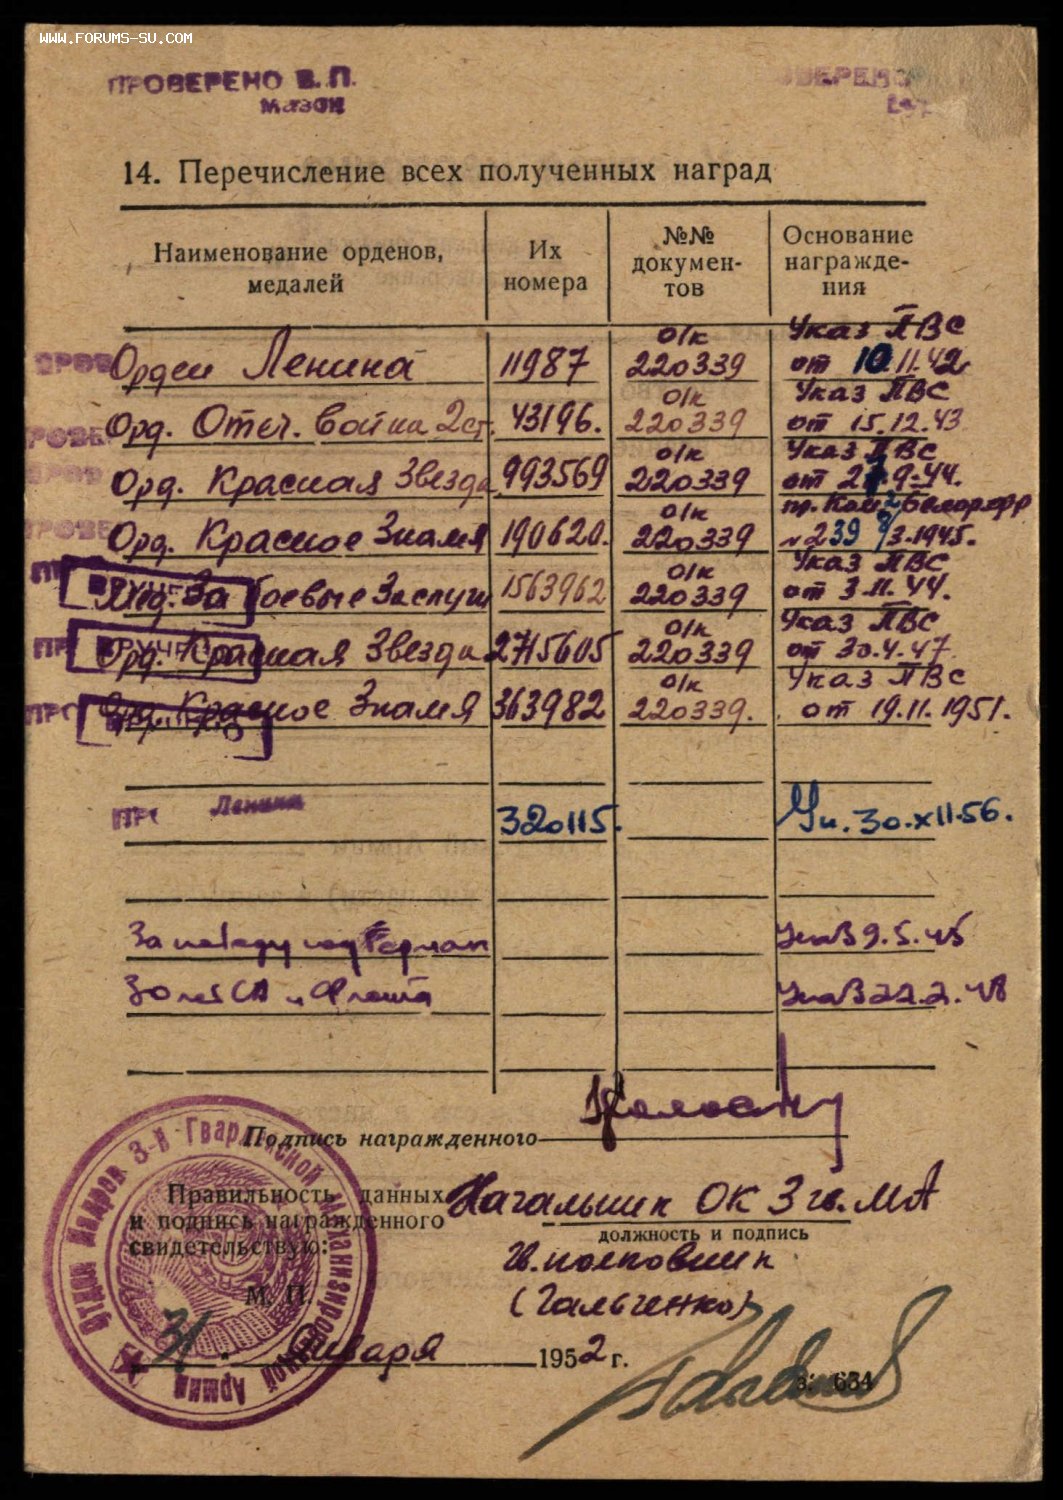 WWW.FORUMS-SU.COM
ПРОВЕРЕНО В. П.
14. Перечисление всех полученных наград
Наименование орденов, медалей
Их номера
№№ документов
Основание награждения
Орден Ленина 11987 о/к 220339 Указ ПВС от 10.11.42
Орд. Отеч. война 2ст. 43196. о/к 220339 Указ ПВС от 15.12.43
Орд. Красная Звезда 993569 о/к 220339 Указ ПВС от 2 9-44.
Орд. Красное Знамя 190620. о/к 220339 пр. Ком. 2 Белор. фр №239 3.1945.
Мед. За боевые Заслуги 1563962 о/к 220339 Указ ПВС от 3.11.44.
Орд. Красная Звезда 2715605 о/к 220339 Указ ПВС от 30.4.47.
Орд. Красное Знамя 363982 о/к 220339. Указ ПВС от 19.11.1951.
Ленина 320115. Ук. 30.XII.56.
За победу над Герман Указ 9.5.45
30 лет СА и Флота Указ 22.2.48
Подпись награжденного
Правильность данных
и подпись награжденного
свидетельствую:
Начальник ОК 3 гв. МА
должность и подпись
гв. полковник
(Гальченко)
М. П.
31 января 1952 г.
Отдел Кадров 3-й Гвардейской Механизированной Армии
654